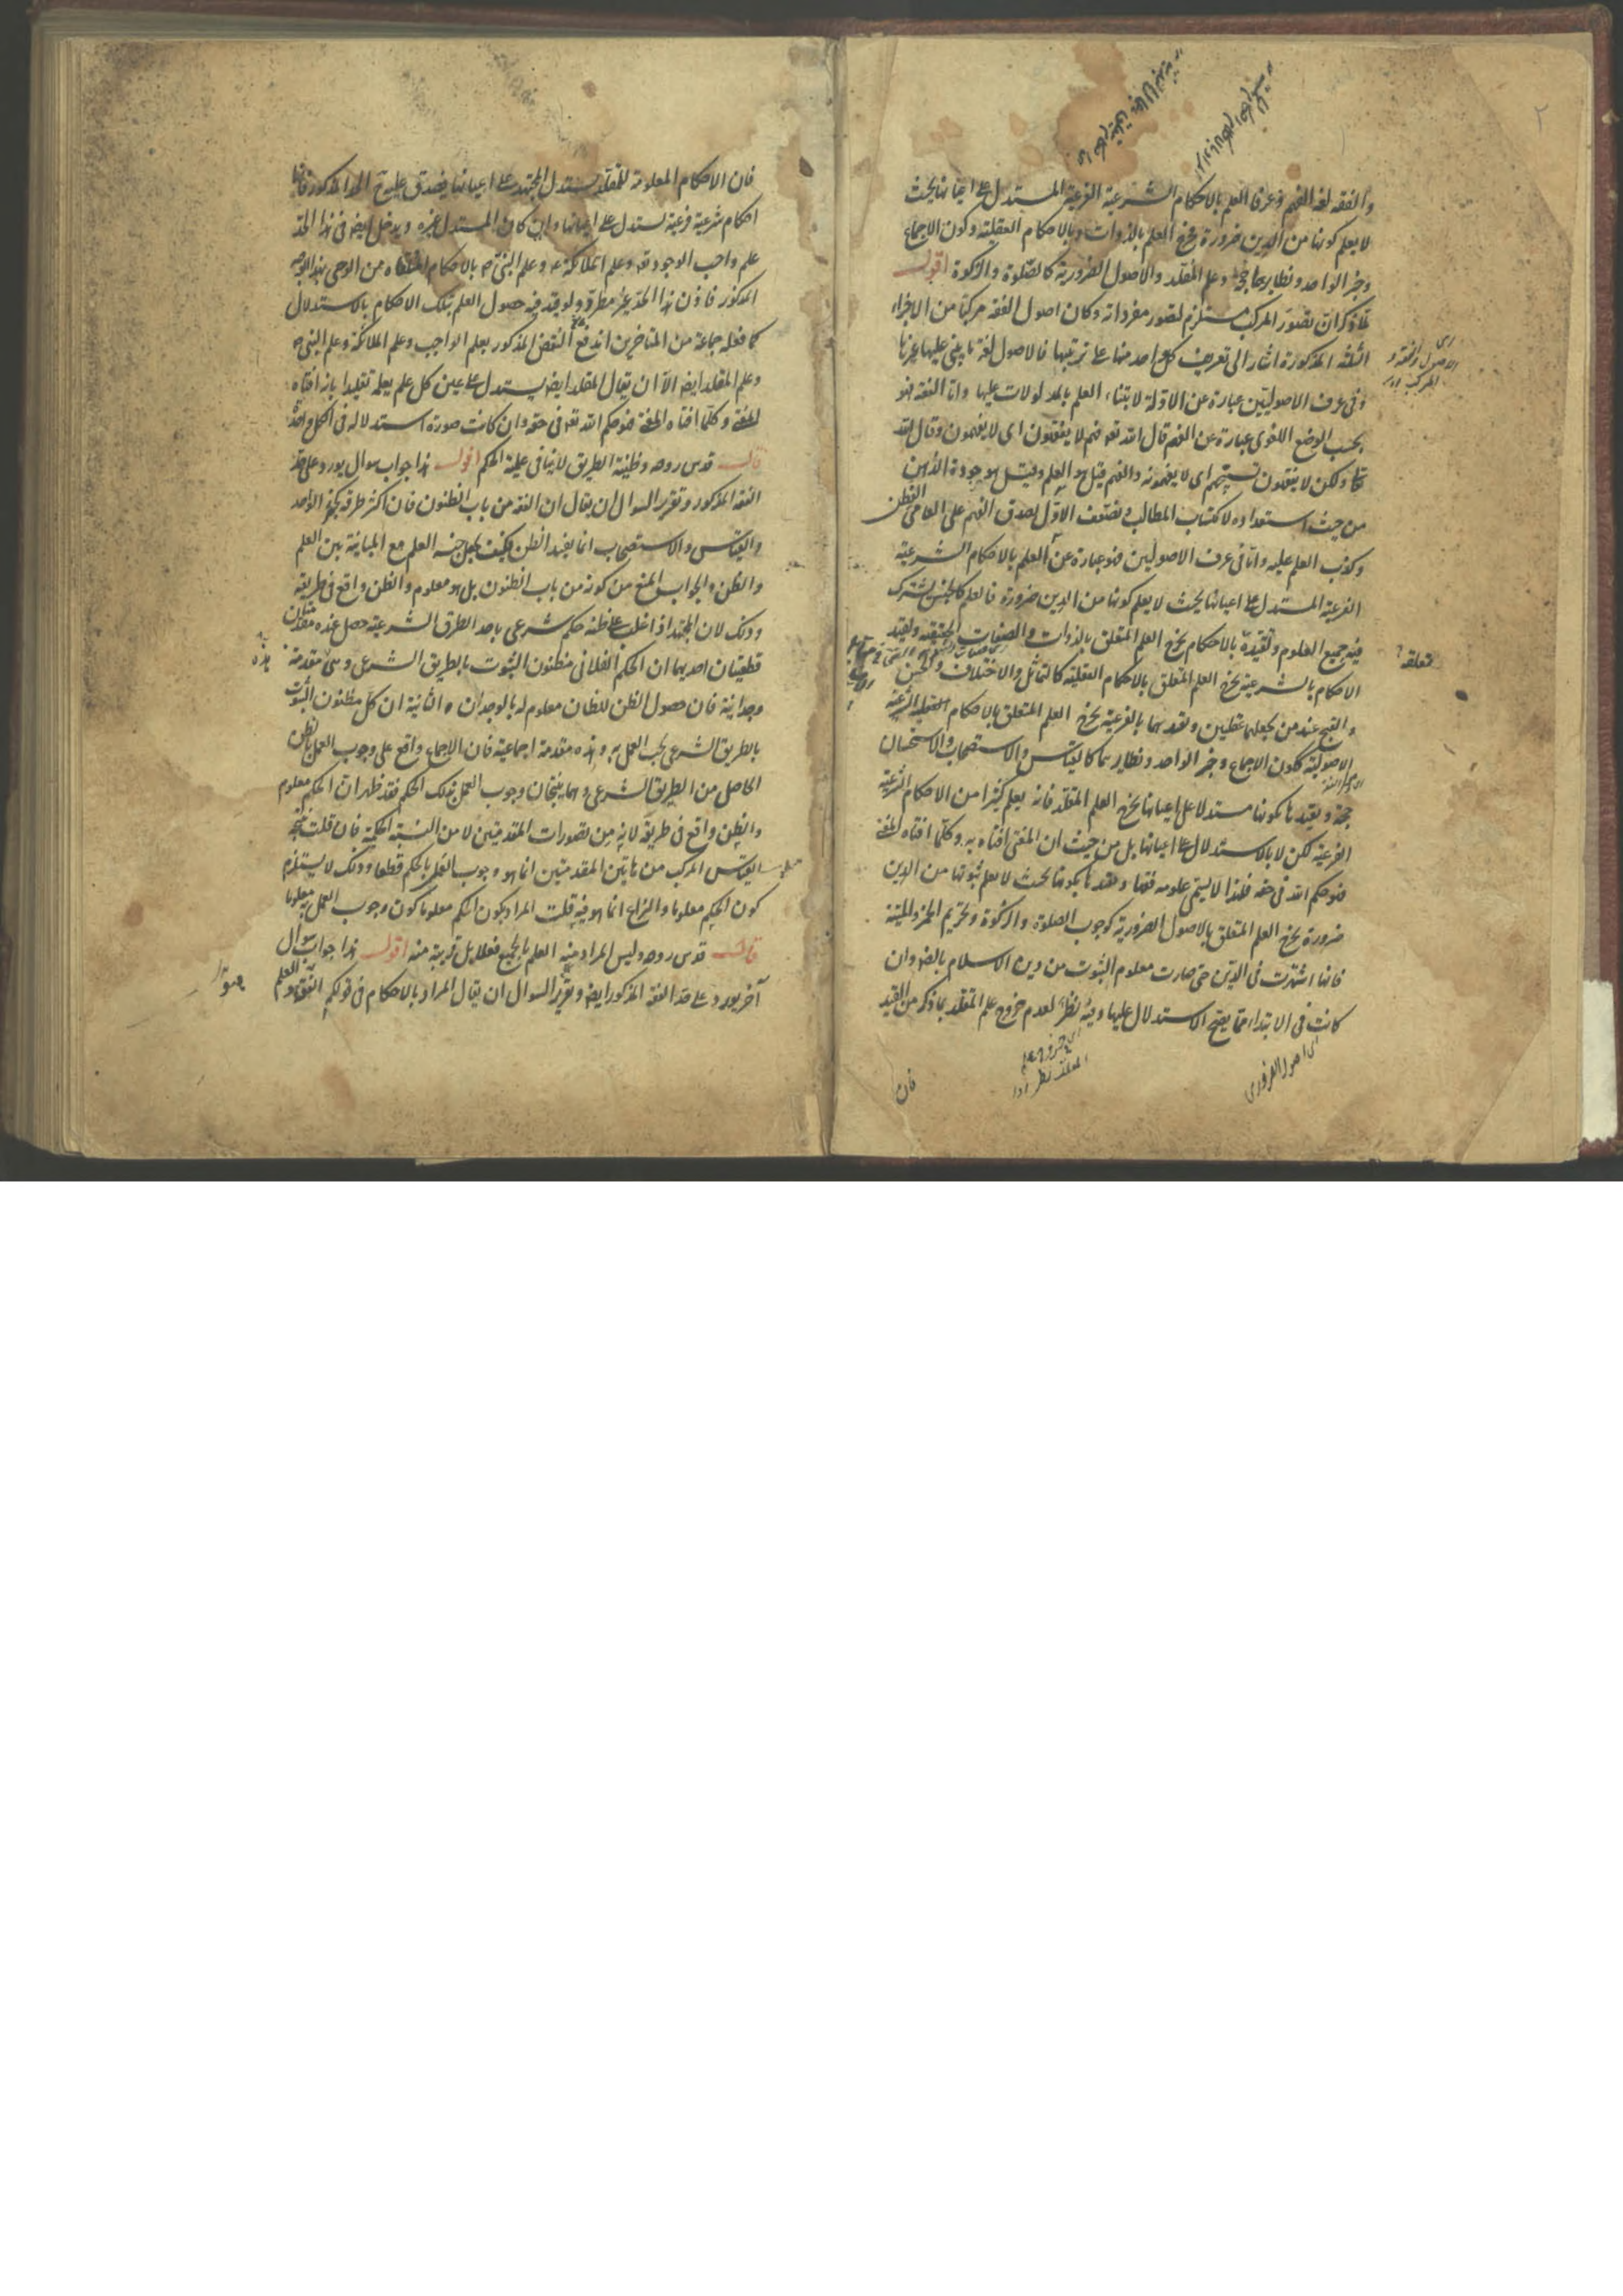 والفقه لغة الفهم وعرفا العلم بالاحكام الشرعية الفرعية المستدل على اعيانها بحيث
لا يعلم كونها من الدين ضرورة فخرج العلم بالذوات وبالاحكام العقلية وكون الاجماع
وخبر الواحد ونظايرهما حجة وعلم المقلد والاصول الضرورية كالصلوة والزكوة اقول
لما ذكر ان تصور المركب مستلزم لتصور مفرداته وكان اصول الفقه مركبا من الاجزاء
الثلثة المذكورة اشار الى تعريف كل واحد منها على ترتيبها فالاصول لغة ما يبنى عليها غيرها
وفى عرف الاصوليين عبارة عن الادلة لابتناء العلم بالمدلولات عليها واما الفقه فهو
بحسب الوضع اللغوى عبارة عن الفهم قال الله تعه فهم لا يفقهون اى لا يفهمون وقال الله
تعا ولكن لا يفقهون تسبيحهم اى لا يفهمونه والفهم قيل هو العلم وقيل هو جودة الذهن
من حيث استعداده لاكتساب المطالب وضعف الاول لصدق الفهم على العامى الفطن
وكذب العلم عليه واما فى عرف الاصوليين فهو عبارة عن العلم بالاحكام الشرعية
الفرعية المستدل على اعيانها بحيث لا يعلم كونها من الدين ضرورة فالعلم كالجنس يشترك
فيه جميع العلوم وتقييده بالاحكام يخرج العلم المتعلق بالذوات والصفات الحقيقية وتقييد
الاحكام بالشرعية يخرج العلم المتعلق بالاحكام العقلية كالتماثل والاختلاف والحسن
والقبح عند من يجعلهما عقليين وتقييدهما بالفرعية يخرج العلم المتعلق بالاحكام الشرعية
الاصولية ككون الاجماع وخبر الواحد ونظايرهما كالقياس والاستصحاب والاستحسان
حجة وتقييدها بكونها مستدلا على اعيانها يخرج العلم المقلد فانه يعلم كثيرا من الاحكام الشرعية
الفرعية لكن لا بالاستدلال على اعيانها بل من حيث ان المفتى افتاه به وكلما افتاه المفتى
فهو حكم الله فى حقه فلهذا لا يسمى علومه فقها وتقييدها بكونها بحيث لا يعلم ثبوتها من الدين
ضرورة يخرج العلم المتعلق بالاصول الضرورية كوجوب الصلوة والزكوة وتحريم الخمر والميتة
فانها اشتهرت فى الدين حتى صارت معلوم الثبوت من دين الاسلام بالضه وان
كانت فى الابتداء مما يصح الاستدلال عليها وفيه نظر لعدم خروج علم المقلد بما ذكر من القيد
اى اصول الضرورى
فان
فان الاحكام المعلومة للمقلد يستدل المجتهد على اعيانها فيصدق عليه الحد المذكور فانها
احكام شرعية فرعية يستدل على اعيانها وان كان المستدل غيره ويدخل ايضا فى هذا الحد
علم واجب الوجود تعه وعلم الملائكة ع وعلم النبى ص بالاحكام من الوحى بهذا الوجه
المذكور فاذن هذا الحد غير مطرد ولو قيد فيه حصول العلم بتلك الاحكام بالاستدلال
كما فعله جماعة من المتاخرين اندفع النقض المذكور بعلم الواجب وعلم الملائكة وعلم النبى ص
وعلم المقلد ايضا الا ان يقال المقلد ايضا يستدل على عين كل علم يعلمه تقليدا بانه افتاه
المفتى وكلما افتاه المفتى فهو حكم الله تعه فى حقه وان كانت صورة استدلاله فى الكل واحدة
قال قدس روحه وظنية الطريق لا ينافى علمية الحكم اقول هذا جواب سوال يورد على حد
الفقه المذكور وتقرير السوال ان يقال ان الفقه من باب الظنون فان اكثر طرقه كخبر الواحد
والقياس والاستصحاب انما يفيد الظن فكيف يجعل جنسه العلم مع المباينة بين العلم
والظن والجواب المنع من كونه من باب الظنون بل هو معلوم والظن واقع فى طريقه
وذلك لان المجتهد اذا غلب على ظنه حكم شرعى باحد الطرق الشرعية حصل عنده مقدمتان
قطعيتان احديهما ان الحكم الفلانى مظنون الثبوت بالطريق الشرعى وهى مقدمة
وجدانية فان حصول الظن للظان معلوم له بالوجدان والثانية ان كل مظنون الثبوت
بالطريق الشرعى يجب العمل به وهذه مقدمة اجماعية فان الاجماع واقع على وجوب العمل بالظن
الحاصل من الطريق الشرعى وهما ينتجان وجوب العمل بذلك الحكم فقد ظهر ان الحكم معلوم
والظن واقع فى طريقه لانه من تصورات المقدمتين لا من النسبة الحكمية فان قلت نتيجة
القياس المركب من هاتين المقدمتين انما هو وجوب العمل بالحكم قطعا وذلك لا يستلزم
كون الحكم معلوما والنزاع انما هو فيه قلت المراد بكون الحكم معلوما كون وجوب العمل به معلوما
قال قدس روحه وليس المراد منه العلم بالجميع فعلا بل قريبة منه اقول هذا جواب سوال
آخر يورد على حد الفقه المذكور ايضا وتقرير السوال ان يقال المراد بالاحكام فى قولكم الفقه هو العلم